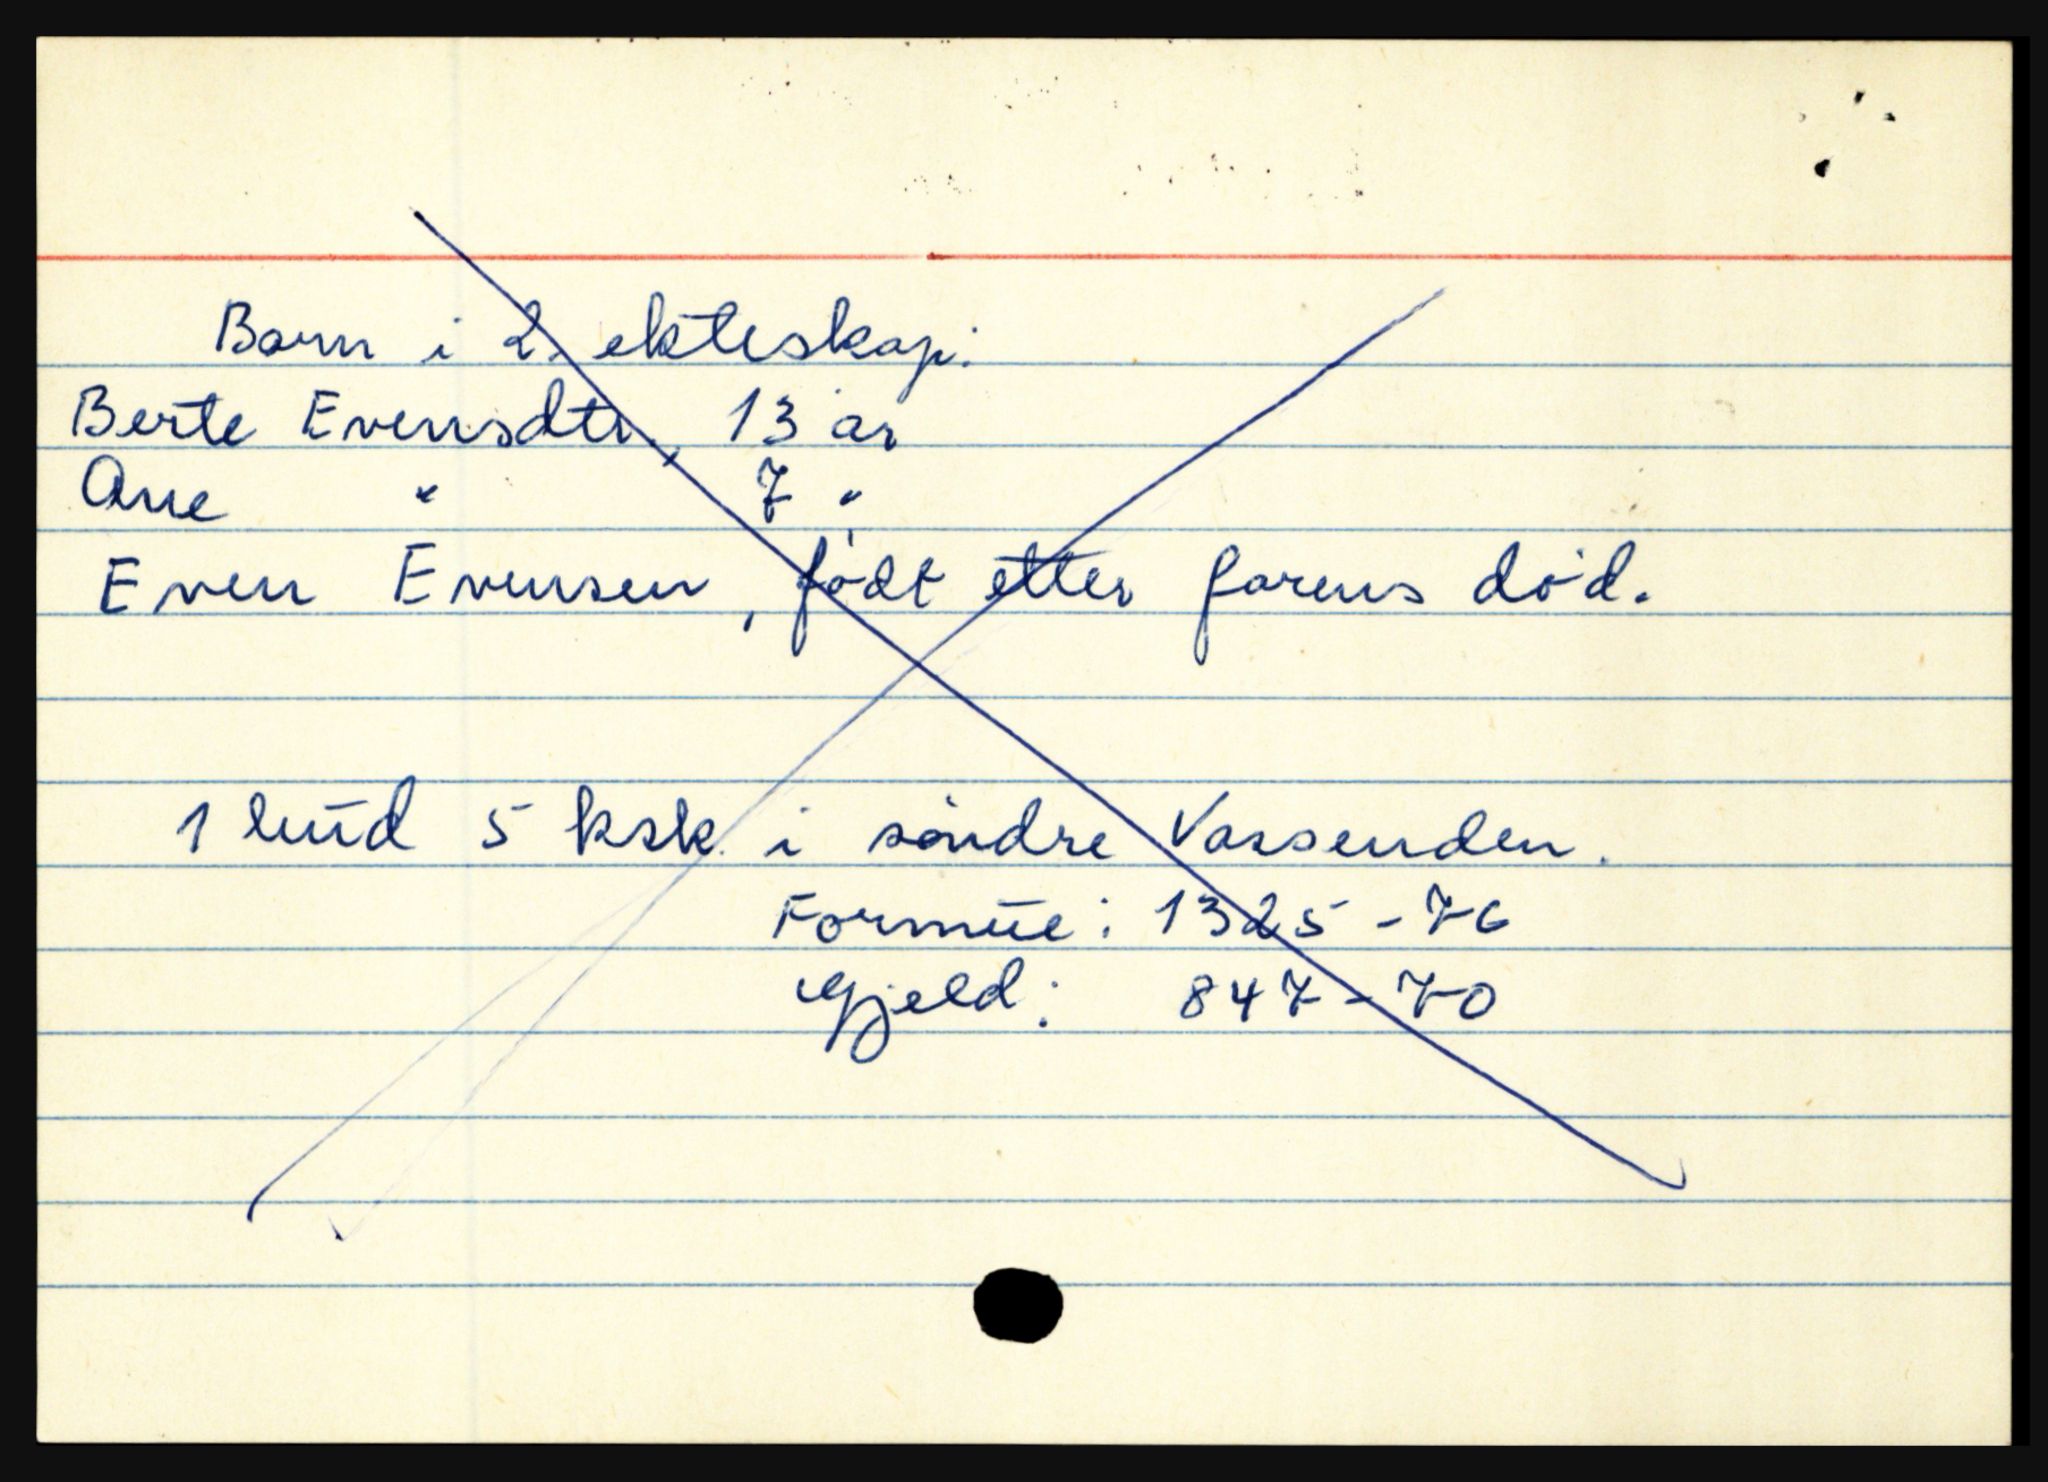 Barn i 2. ekteskap:
Berte Evensdtr., 13 år
Ane " 7 "
Even Evensen, født etter farens død.
1 laud 5 ksk. i søndre Vassenden.
Formue: 1325 - 76
Gjeld: 847 - 70